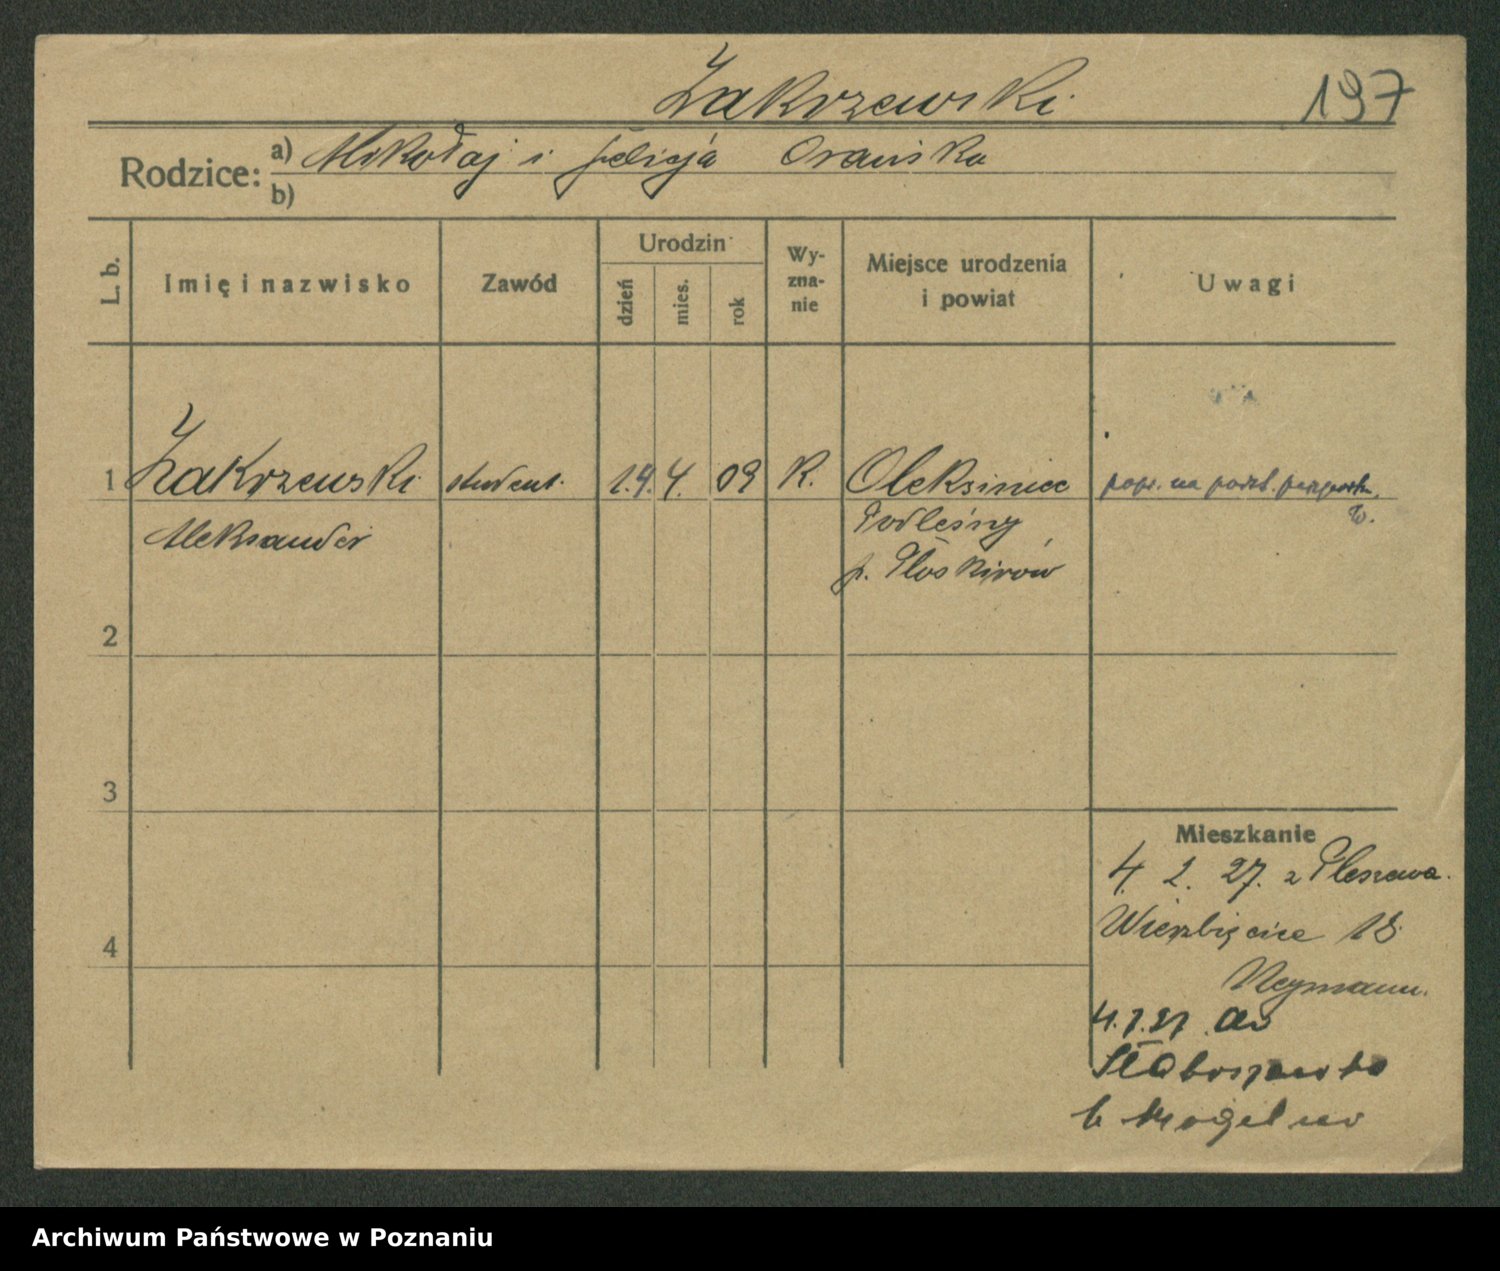 Zakrzewski
197
Rodzice: a) Mikołaj i Felicja Orańska
b)
L. b.
Imię i nazwisko
Zawód
Urodzin
dzień
mies.
rok
Wy-
zna-
nie
Miejsce urodzenia
i powiat
Uwagi
1 Zakrzewski student. 14. 4. 09 R. Oleksiniec popr. na podst. paszportu.
Aleksander Podleśny
p. Płoskirów
2
3
Mieszkanie
4. 2. 27. z Pleszewa.
Wierzbięcice 18
Neymann.
4
do
Słaboszewko
b Mogilno
Archiwum Państwowe w Poznaniu